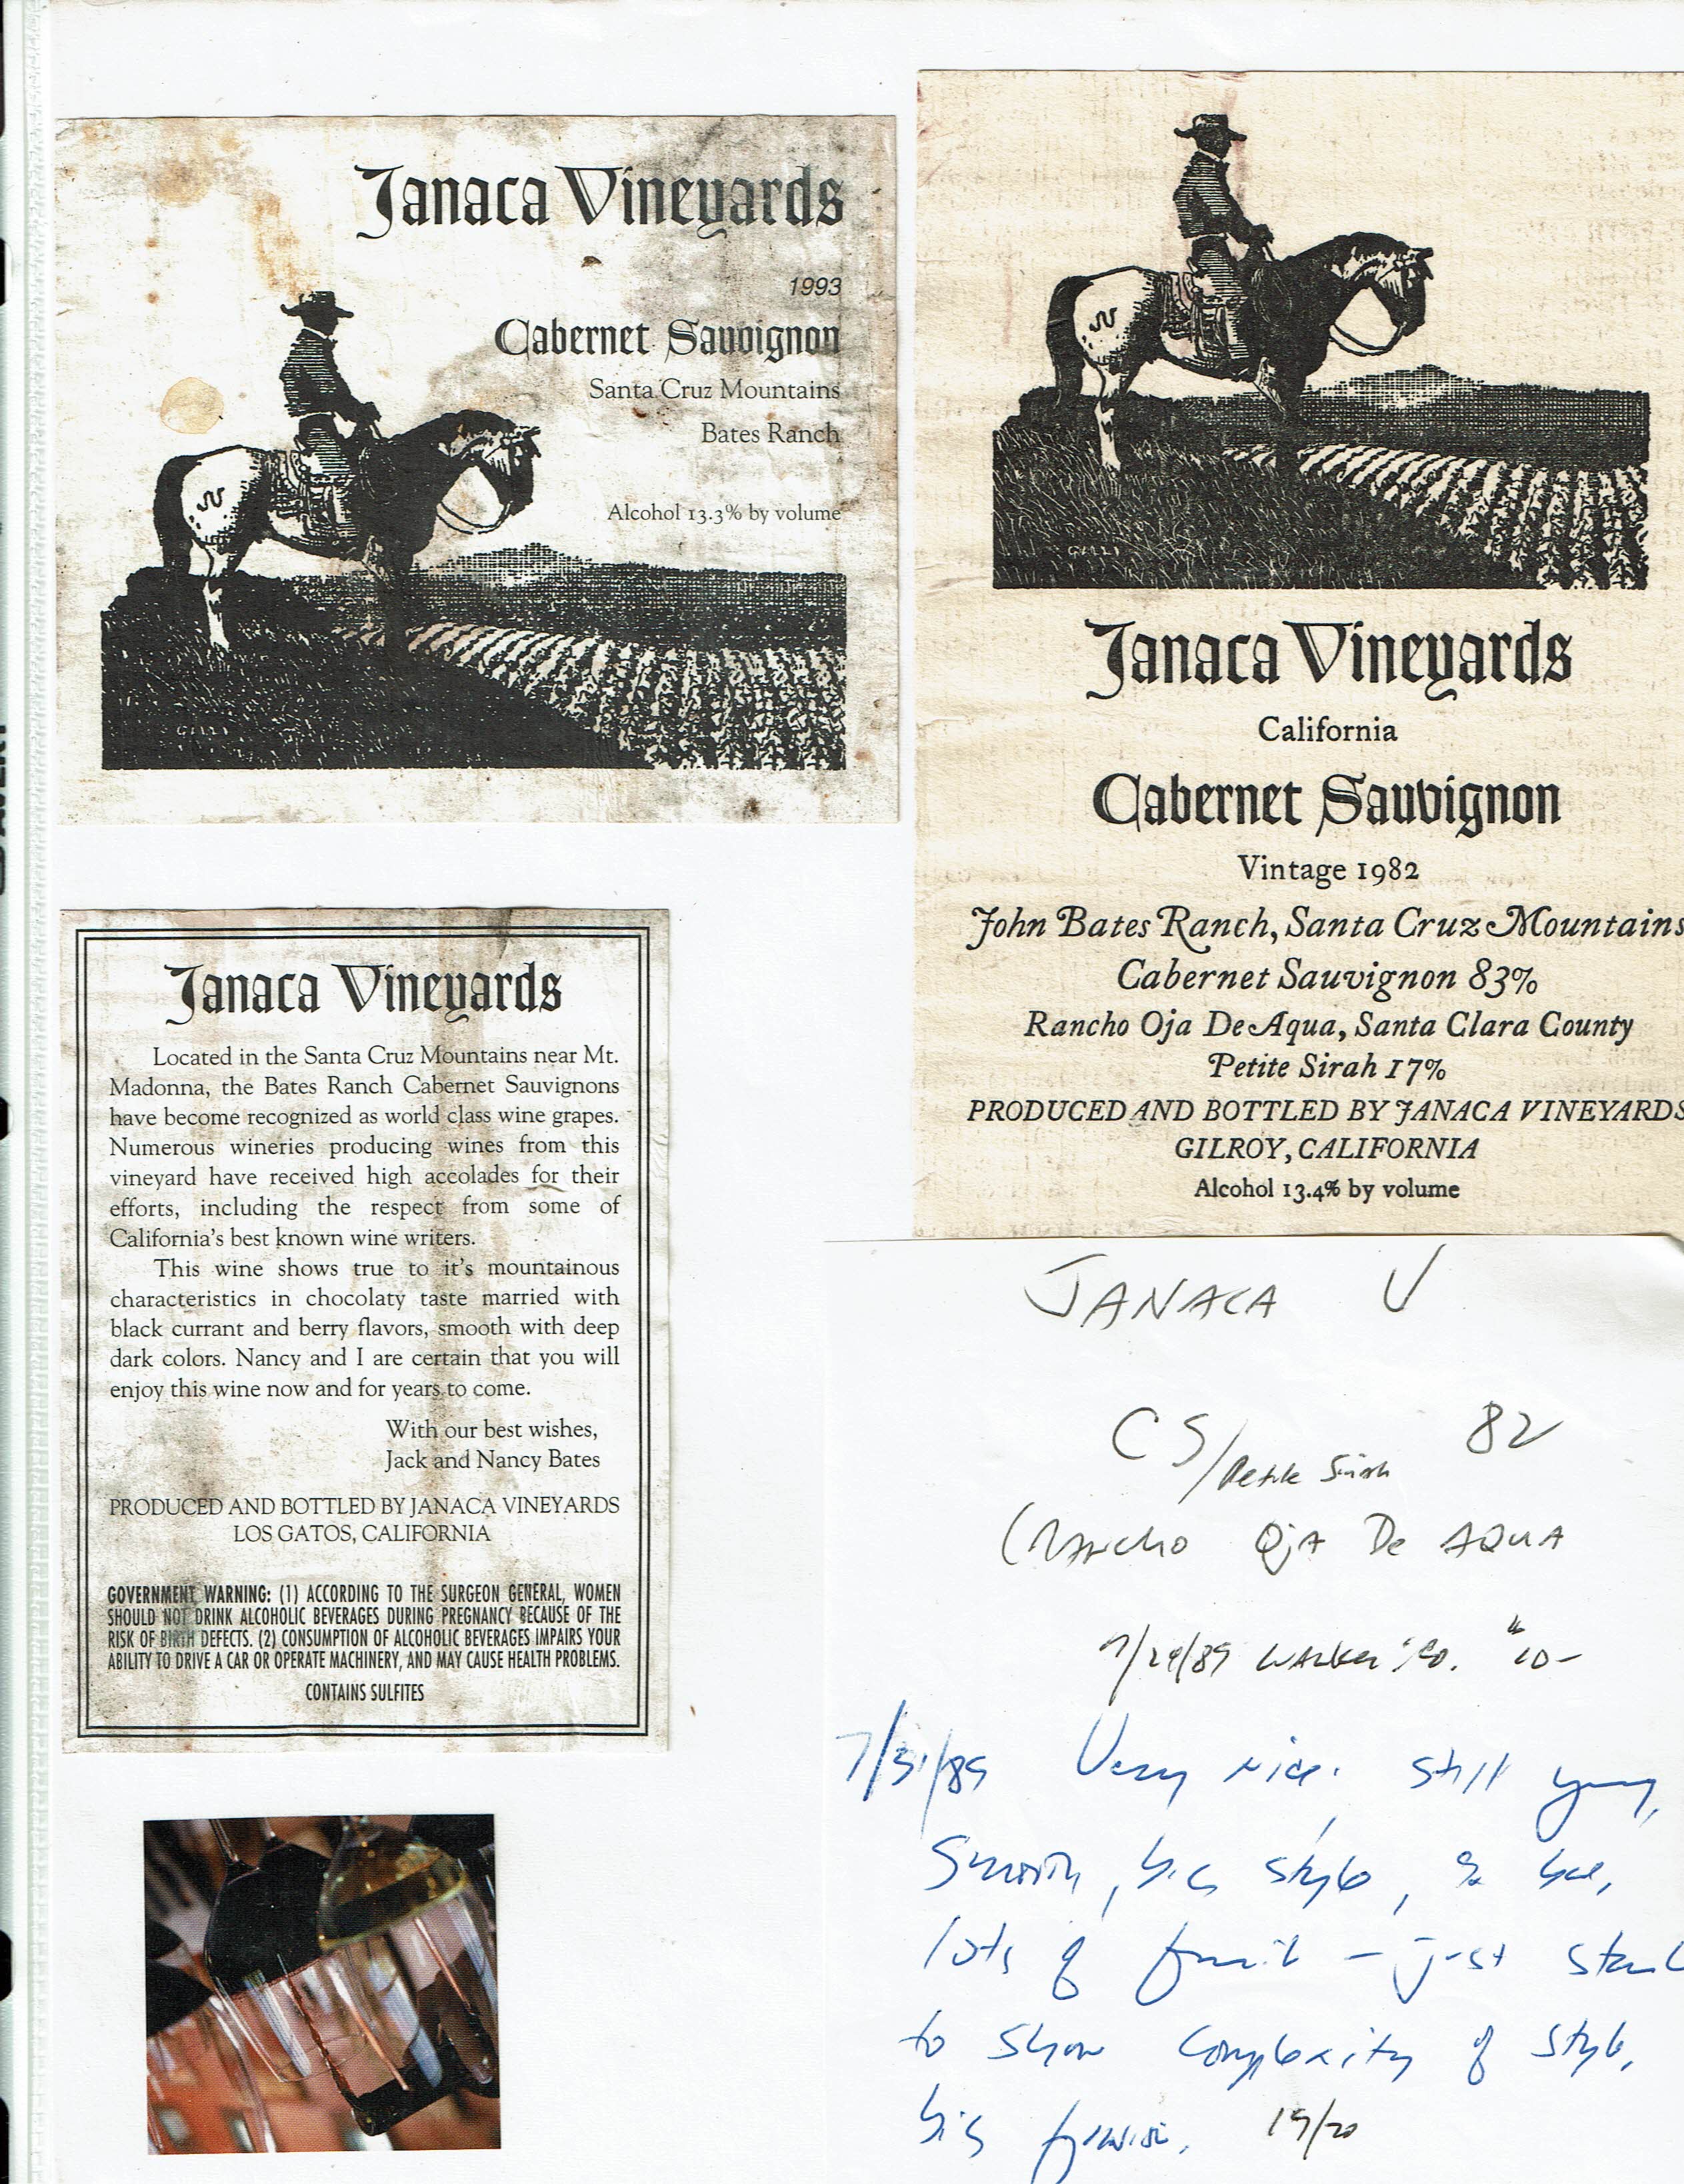 Janaca Vineyards
1993
Cabernet Sauvignon
Santa Cruz Mountains
Bates Ranch
Alcohol 13.3% by volume
GILLI
Janaca Vineyards
Located in the Santa Cruz Mountains near Mt.
Madonna, the Bates Ranch Cabernet Sauvignons
have become recognized as world class wine grapes.
Numerous wineries producing wines from this
vineyard have received high accolades for their
efforts, including the respect from some of
California's best known wine writers.
This wine shows true to it's mountainous
characteristics in chocolaty taste married with
black currant and berry flavors, smooth with deep
dark colors. Nancy and I are certain that you will
enjoy this wine now and for years to come.
With our best wishes,
Jack and Nancy Bates
PRODUCED AND BOTTLED BY JANACA VINEYARDS
LOS GATOS, CALIFORNIA
GOVERNMENT WARNING: (1) ACCORDING TO THE SURGEON GENERAL, WOMEN
SHOULD NOT DRINK ALCOHOLIC BEVERAGES DURING PREGNANCY BECAUSE OF THE
RISK OF BIRTH DEFECTS. (2) CONSUMPTION OF ALCOHOLIC BEVERAGES IMPAIRS YOUR
ABILITY TO DRIVE A CAR OR OPERATE MACHINERY, AND MAY CAUSE HEALTH PROBLEMS.
CONTAINS SULFITES
GILLI
Janaca Vineyards
California
Cabernet Sauvignon
Vintage 1982
John Bates Ranch, Santa Cruz Mountains
Cabernet Sauvignon 83%
Rancho Oja De Aqua, Santa Clara County
Petite Sirah 17%
PRODUCED AND BOTTLED BY JANACA VINEYARDS
GILROY, CALIFORNIA
Alcohol 13.4% by volume
JANACA V
CS/Petite Sirah 82
(Rancho Oja De AQUA
7/29/89 10-
7/31/89 Very nice. Still young,
Smooth, big style,
lots of fruit - just
to show complexity of style,
big finish. 19/20